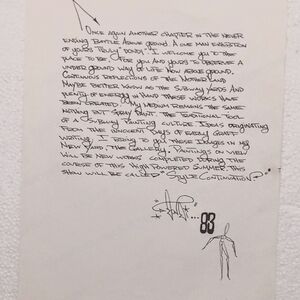 Once again another chapter in the never
ending battle above ground. A one man exhibition
of yours truly "Dondi". I welcome you to the
place to be. For you and yours to observe a
under ground way of life now above ground.
Continuous reflections of the Motherland
maybe better know as the subway yards and
plenty of energy in hand these works have
been created. My medium remains the same
nothing but spray paint. The traditional tool
of a subway painting culture. Ideas originating
from the innocent days of every graff
writing. I bring to you those images in my
new yard, the gallery. Paintings on view
will be new works completed during the
course of this high powered summer. This
show will be called "Style Continuation"
83